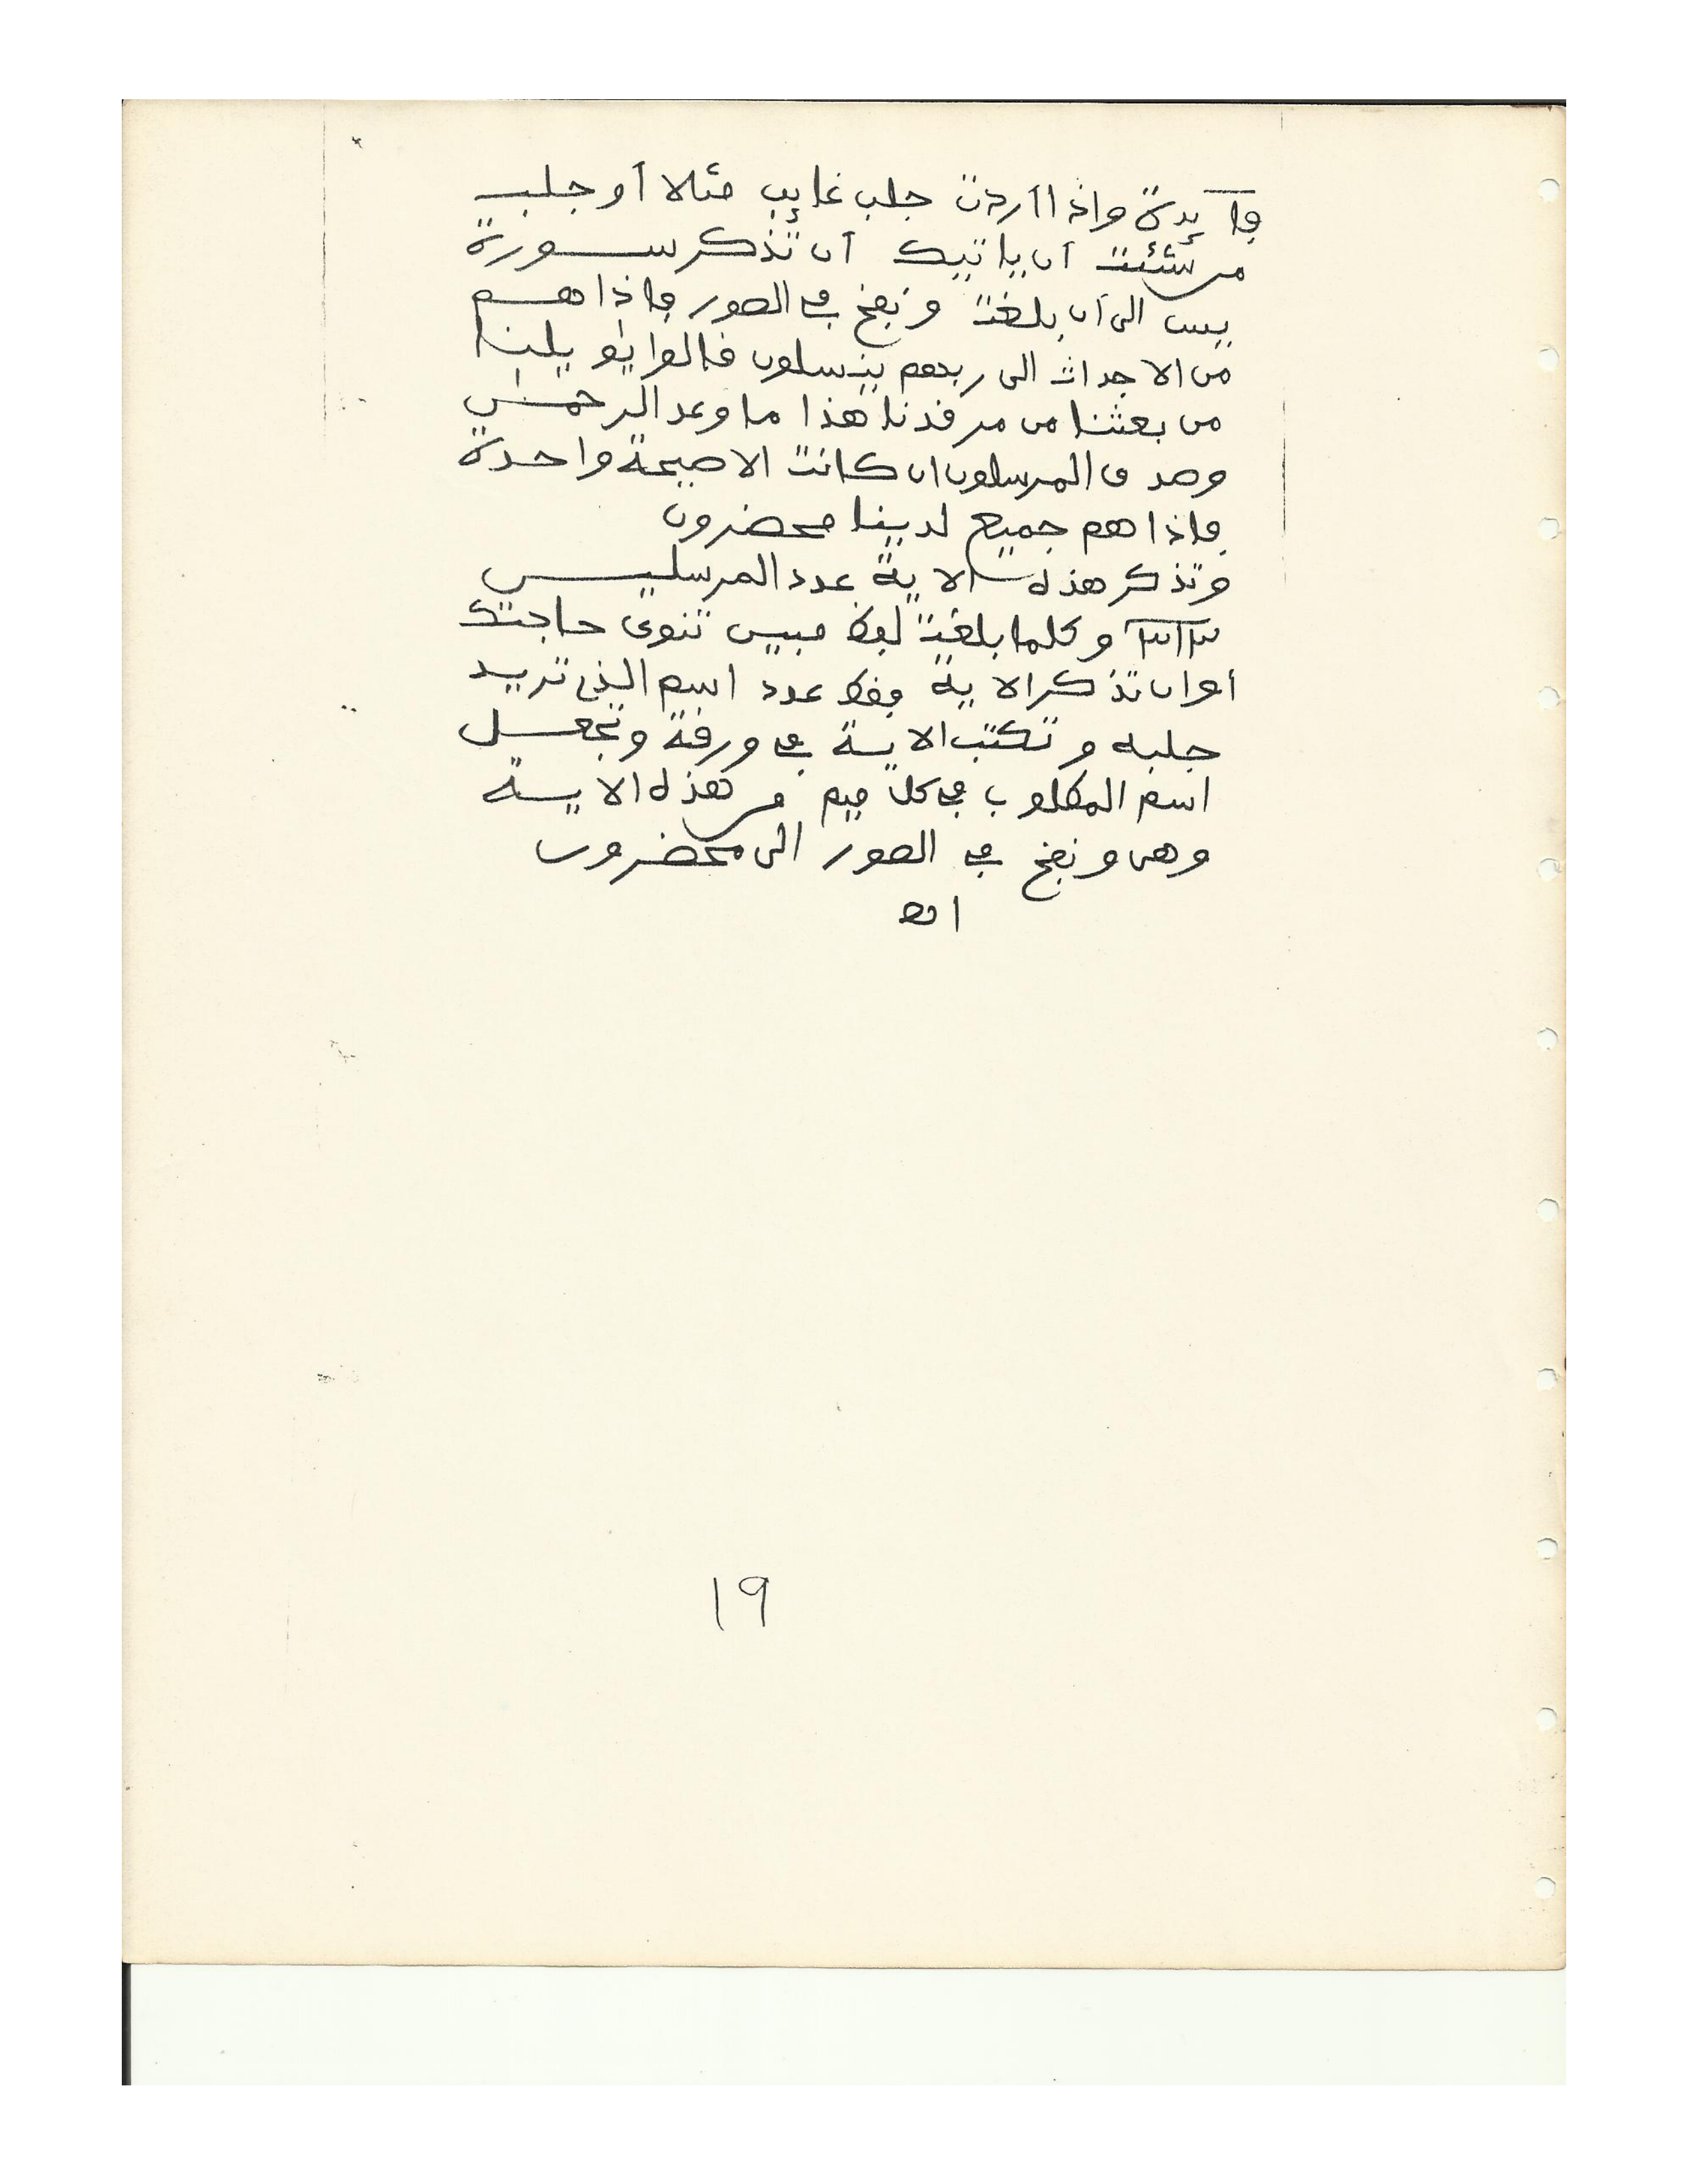 فايدة واذا أردت جلب غايب مثلا أو جلب
من شئت أن ياتيك أن تذكر سورة
يس الى أن بلغت ونفخ في الصور فاذا هم
من الاجداث الى ربهم ينسلون قالوا يويلنا
من بعثنا من مرقدنا هذا ما وعد الرحمن
وصدق المرسلون ان كانت الا صيحة واحدة
فاذا هم جميع لدينا محضرون
وتذكر هذه الاية عدد المرسليـن
٣١٣ وكلما بلغت لفظ مبين تنوى حاجتك
أو ان تذكر الاية فقط عدد اسم الذي تريد
جلبه وتكتب الاية في ورقة وتجعل
اسم المطلوب في كل ميم من هذه الاية
وهى ونفخ في الصور الى محضرون
اهـ
19